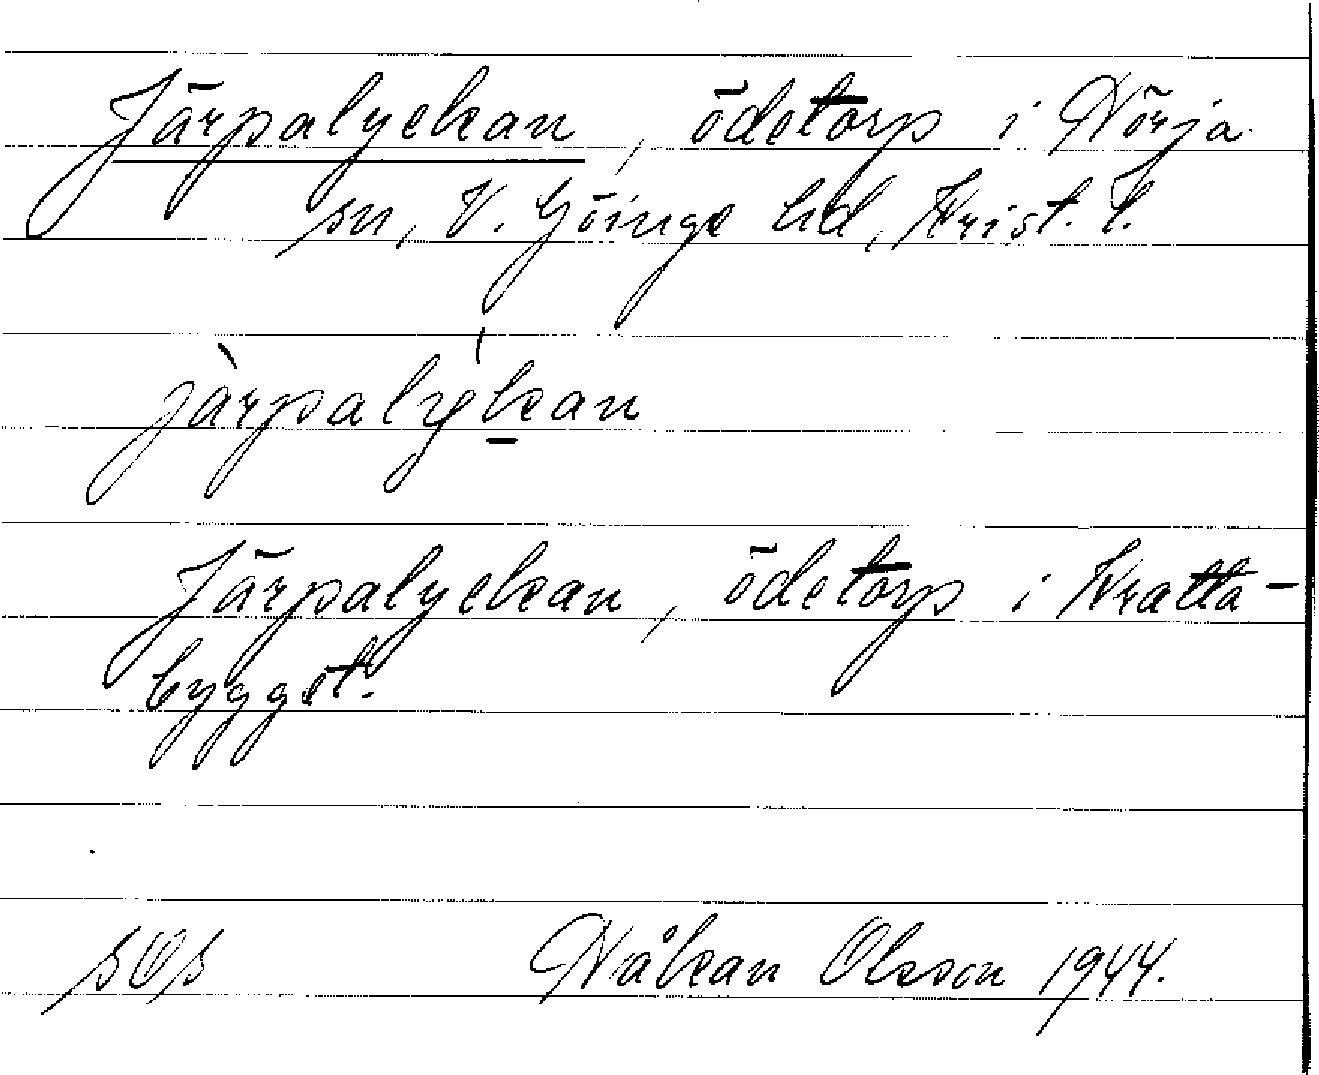 Järpalyckan, ödetorp i Hörja
sn, V. Göinge hd, Krist. l.
jàrpalýkan
Järpalyckan, ödetorp i Kratta-
bygget.
sOs Håkan Olsson 1944.